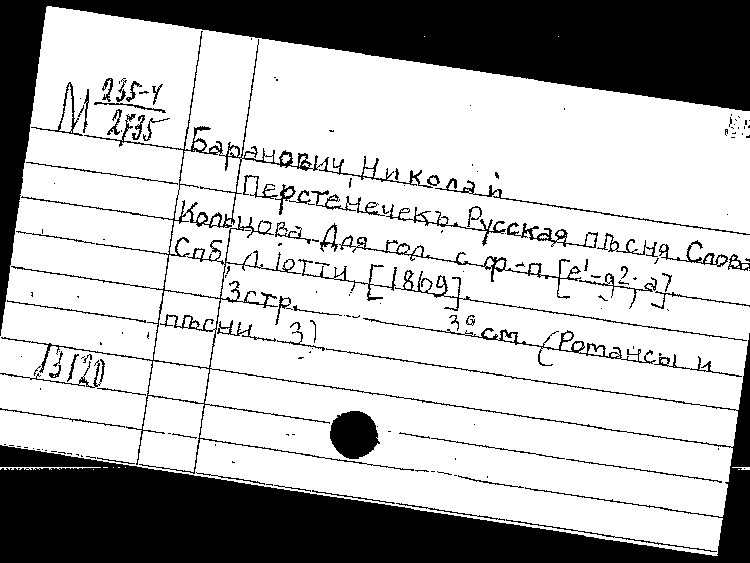 М 235-4
2735
Баранович, Николай
Перстенечекъ. Русская пѣсня. Слова
Кольцова. Для гол. с ф.-п. [e¹-g²; a].
Спб., Л. Iотти, [1869].
3 стр. см. (Романсы и
пѣсни... 3)
13120